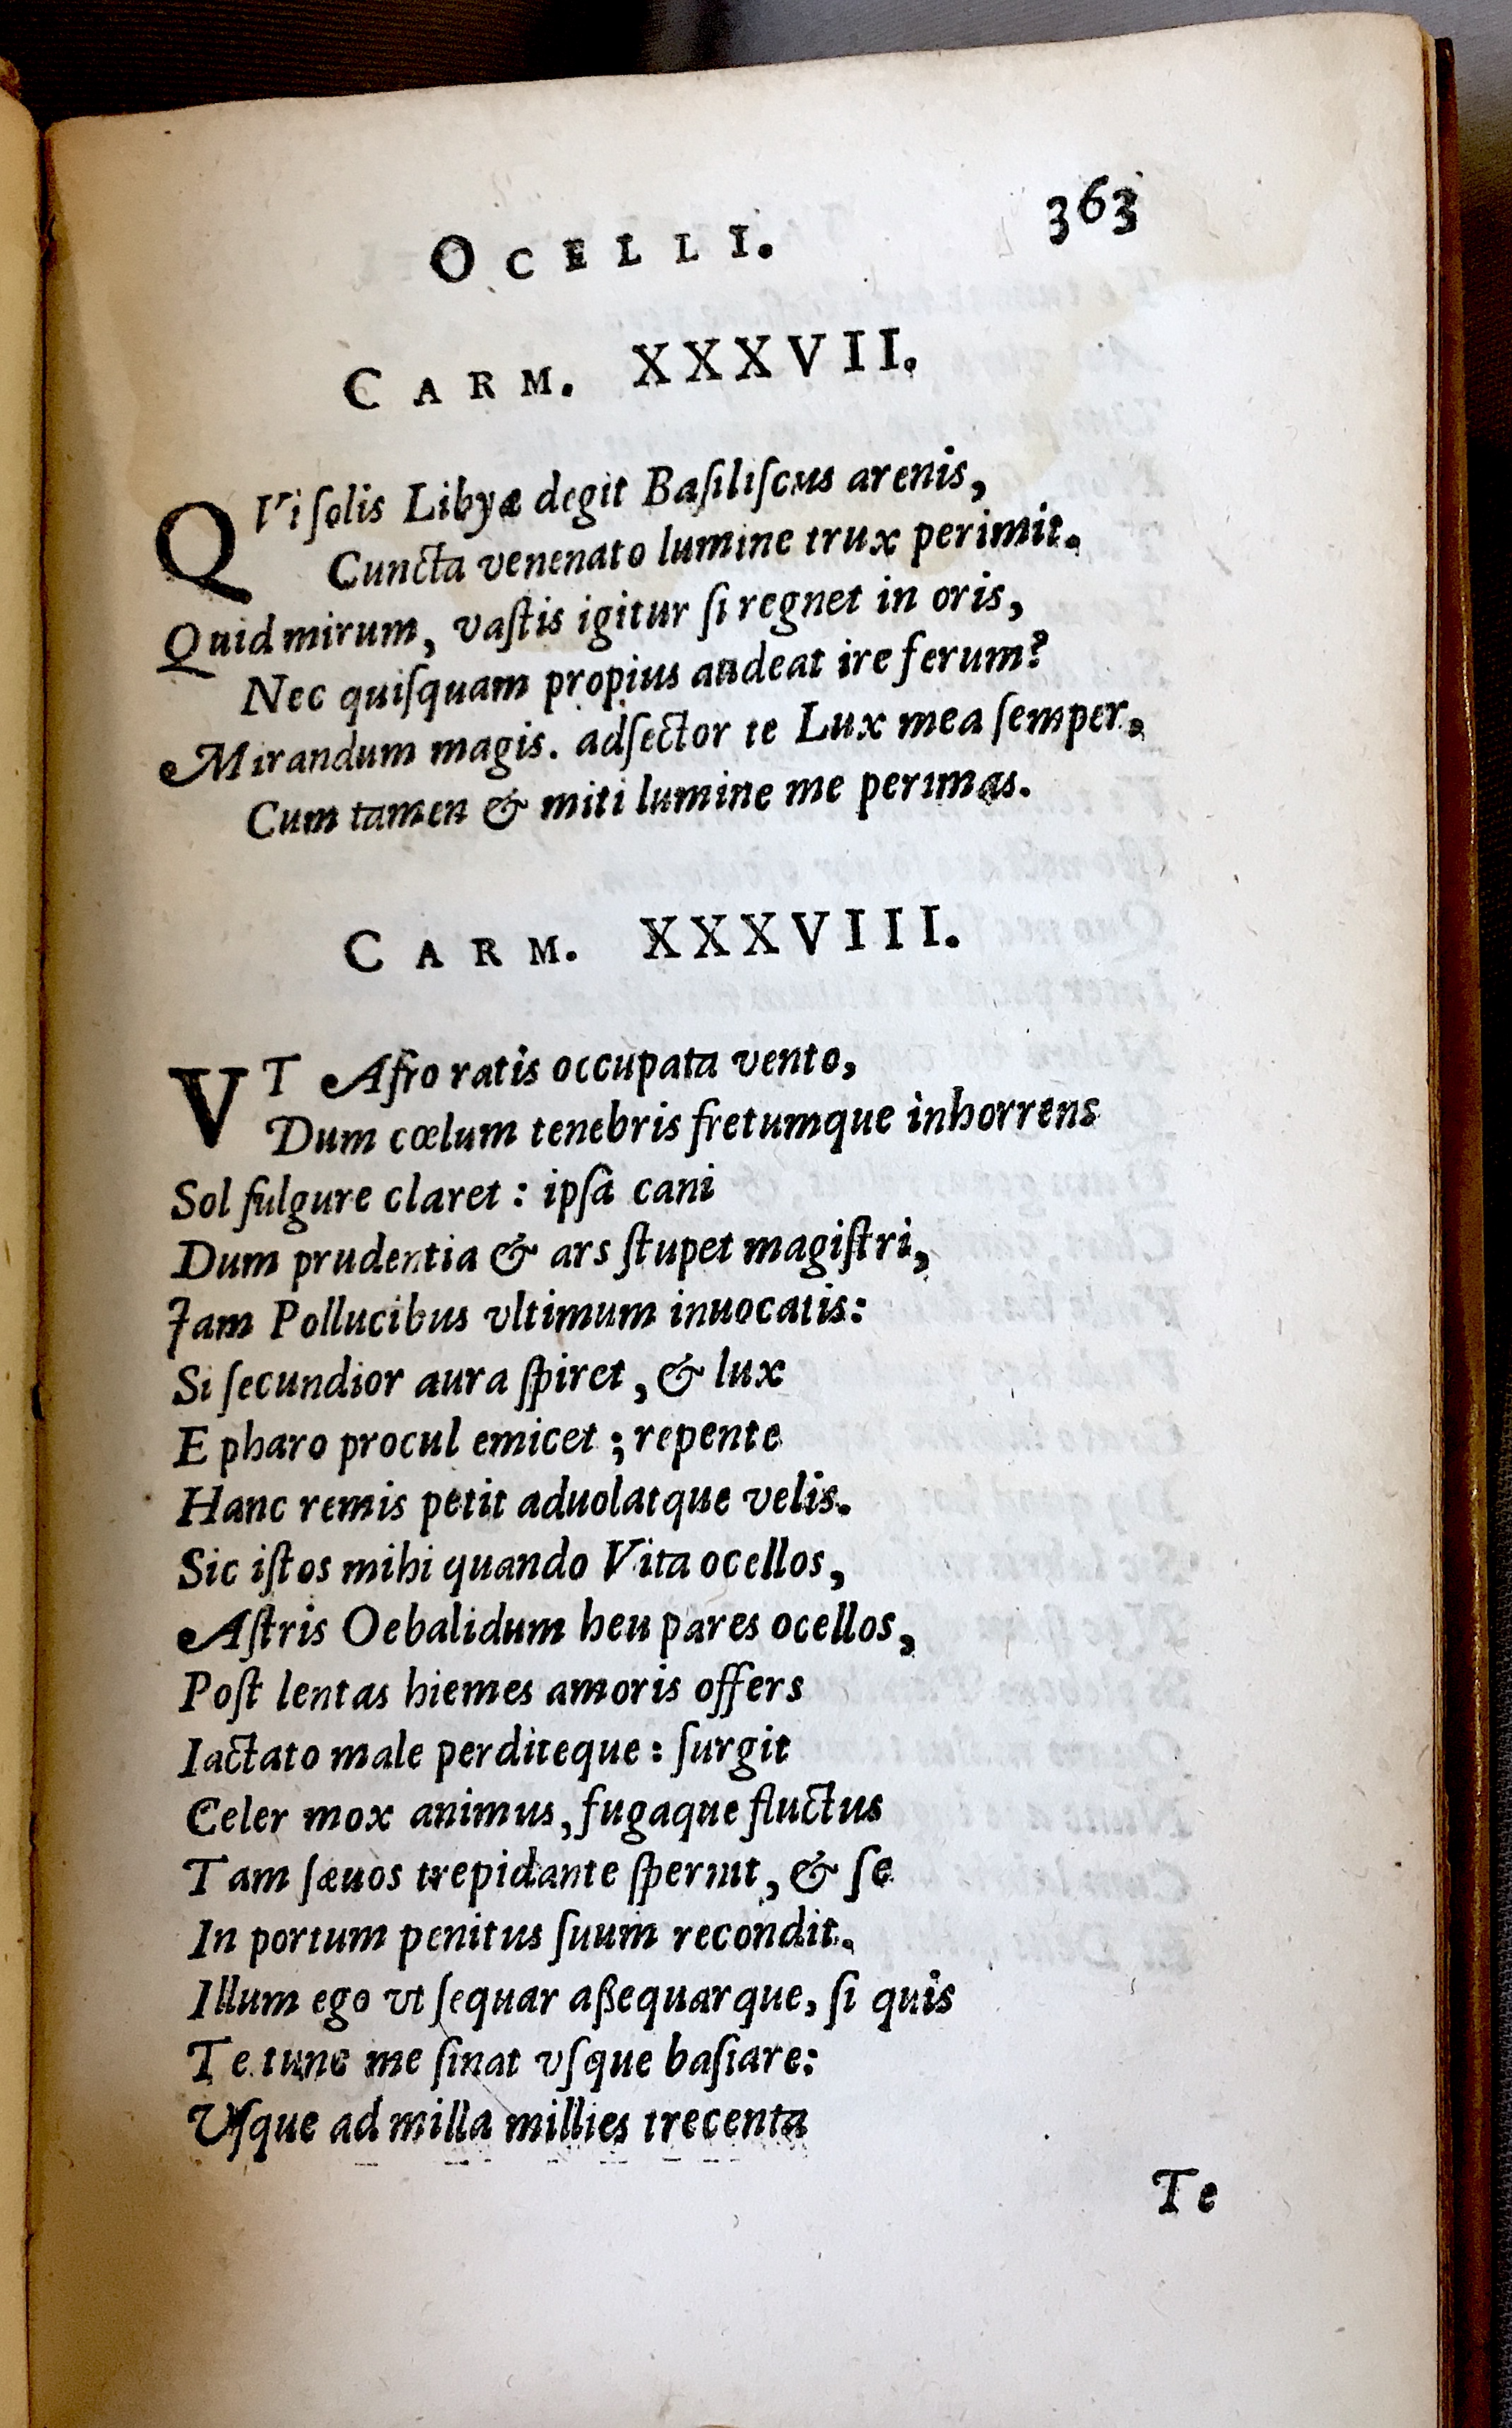 OCELLI. 363
CARM. XXXVII.
QVi ſolis Libyæ degit Baſiliſcus arenis,
Cuncta venenato lumine trux perimit.
Quid mirum, vaſtis igitur ſi regnet in oris,
Nec quiſquam propius audeat ire ferum?
Mirandum magis. adſector te Lux mea ſemper.
Cum tamen & miti lumine me perimas.
CARM. XXXVIII.
VT Afro ratis occupata vento,
Dum cœlum tenebris fretumque inhorrens
Sol fulgure claret : ipſâ cani
Dum prudentia & ars ſtupet magiſtri,
Jam Pollucibus vltimum inuocatis:
Si ſecundior aura ſpiret, & lux
E pharo procul emicet ; repente
Hanc remis petit aduolatque velis.
Sic iſtos mihi quando Vita ocellos,
Aſtris Oebalidum heu pares ocellos,
Poſt lentas hiemes amoris offers
Iactato male perditeque : ſurgit
Celer mox animus, fugaque fluctus
Tam ſæuos trepidante ſpernit, & ſe
In portum penitus ſuum recondit.
Illum ego vt ſequar aßequarque, ſi quis
Te tunc me ſinat vſque baſiare:
Vſque ad milla millies trecenta
Te